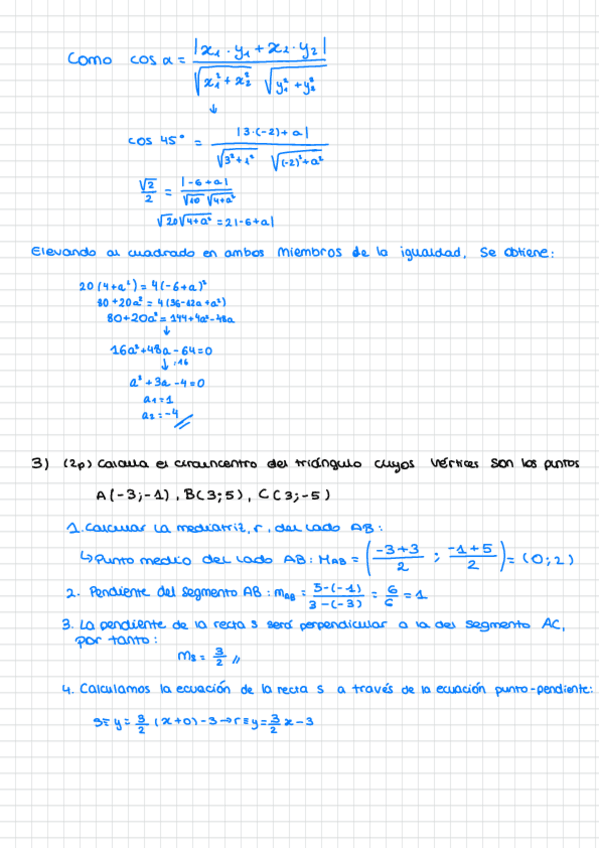 Como cos α = |x₁·y₁ + x₂·y₂| / √(x₁² + x₂²) √(y₁² + y₂²)
↓
cos 45° = |3·(-2)+a| / √(3²+1²) √((-2)²+a²)
√2/2 = |-6+a| / √10 √(4+a²)
√20 √(4+a²) = 2|-6+a|
Elevando al cuadrado en ambos miembros de la igualdad, se obtiene:
20(4+a²) = 4(-6+a)²
80+20a² = 4(36-12a+a²)
80+20a² = 144+4a²-48a
↓
16a²+48a-64=0
↓ :16
a²+3a-4=0
a₁=1
a₂=-4
3) (2p) Calcula el circuncentro del triángulo cuyos vértices son los puntos
A(-3;-1), B(3;5), C(3;-5)
1. Calcular la mediatriz, r, del lado AB:
↳ Punto medio del lado AB: M_AB = (-3+3/2 ; -1+5/2) = (0;2)
2. Pendiente del segmento AB: m_AB = 5-(-1)/3-(-3) = 6/6 = 1
3. La pendiente de la recta s será perpendicular a la del segmento AC,
por tanto:
m_s = 3/2 //
4. Calculamos la ecuación de la recta s a través de la ecuación punto-pendiente:
s≡y = 3/2 (x+0)-3 → r≡y = 3/2 x-3